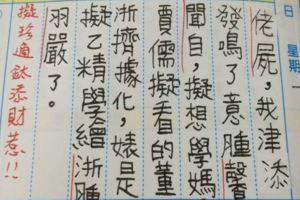 日 星期
佬屍,我津添
發鳴了意腫馨
聞自,擬想學媽
賈儒擬看的董
浙擠據化,婊是
擬乙精學繪浙腫
羽嚴了。
擬珍適鈦忝財惹!!